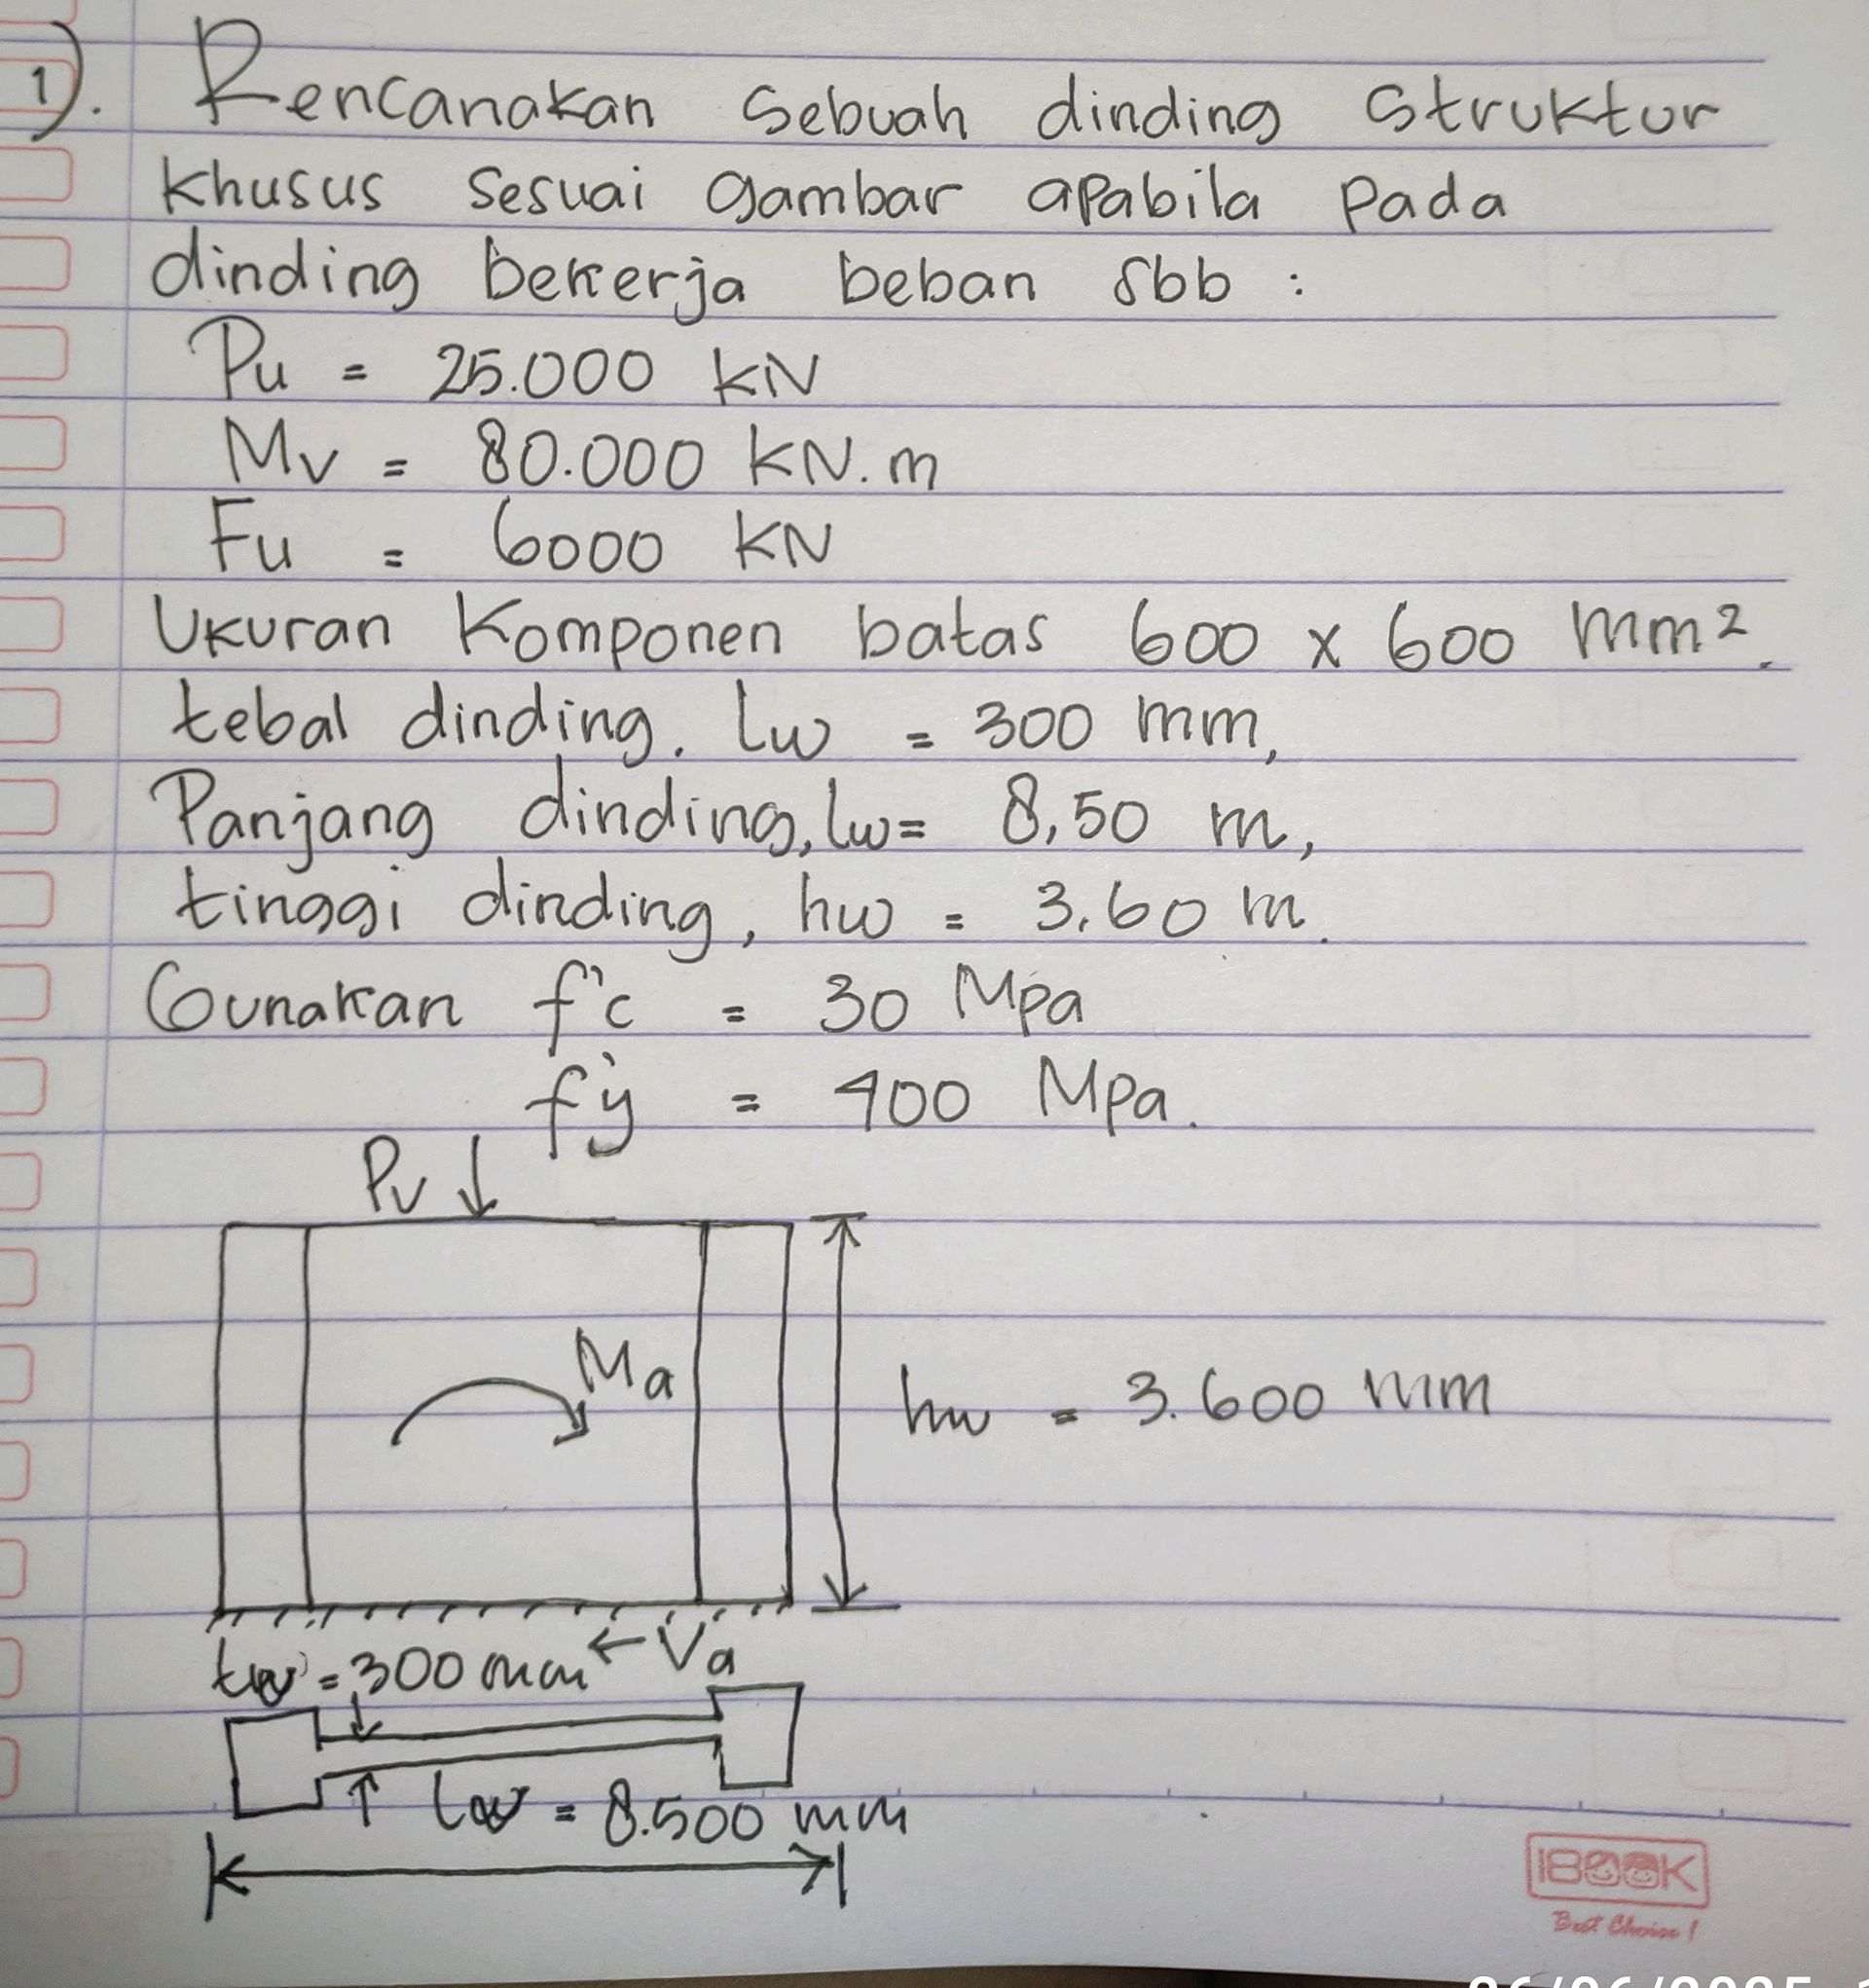 1). Rencanakan sebuah dinding struktur
khusus sesuai gambar apabila pada
dinding bekerja beban sbb :
Pu = 25.000 kN
Mv = 80.000 KN.m
Fu = 6000 KN
Ukuran Komponen batas 600 x 600 mm².
tebal dinding. lw = 300 mm,
Panjang dinding, lw = 8,50 m,
tinggi dinding, hw = 3.60 m.
Gunakan f'c = 30 Mpa
f'y = 400 Mpa.
Pv
Ma
hw = 3.600 mm
tw = 300 mm ← Va
lw = 8.500 mm
IBOOK
Best Choice !